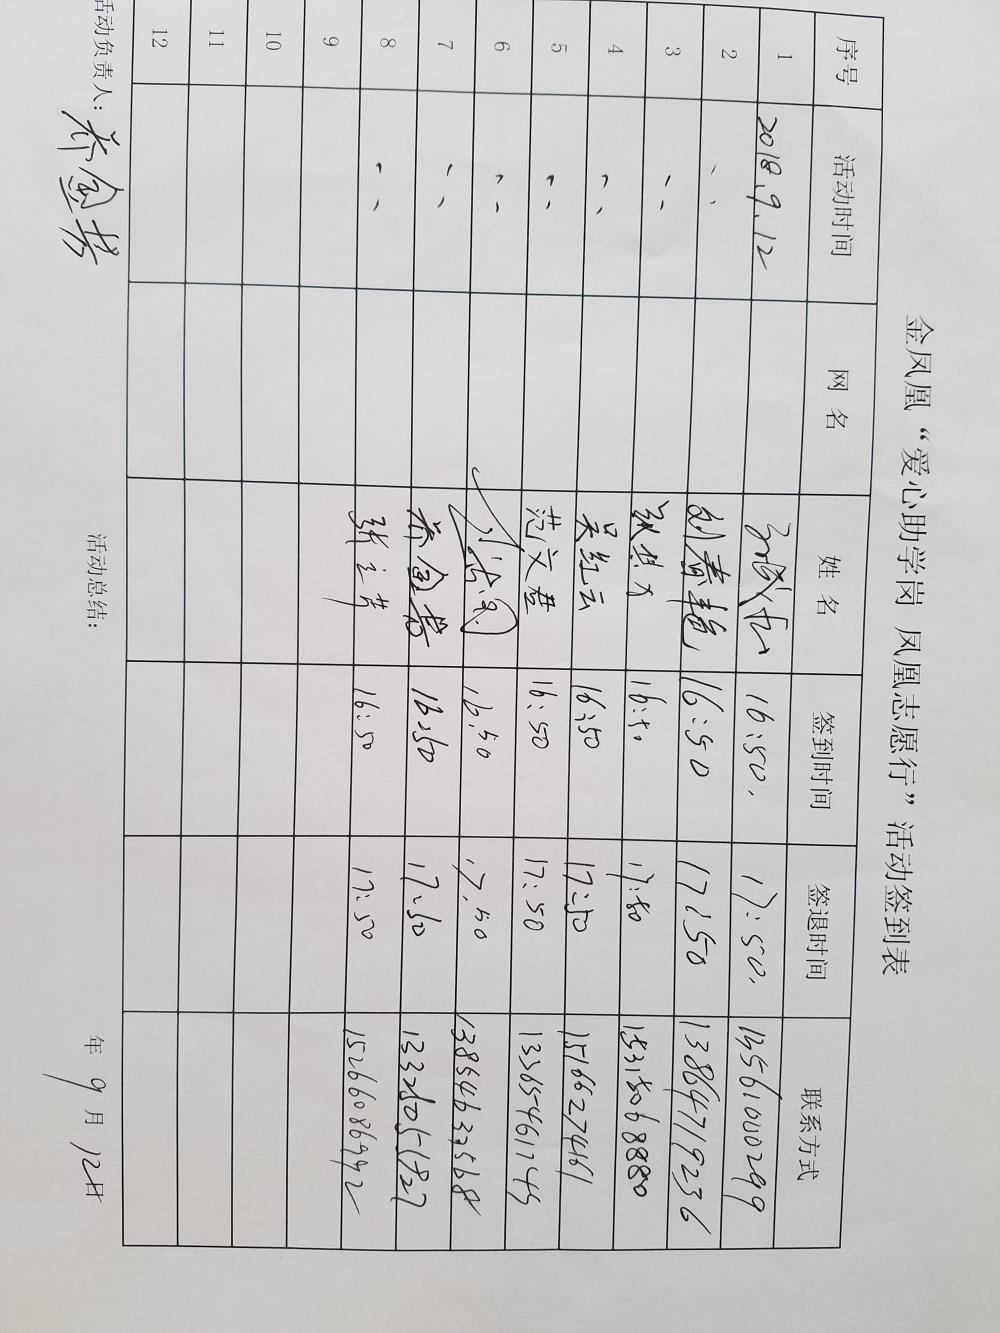 金凤凰“爱心助学岗 凤凰志愿行”活动签到表
序号 活动时间 网 名 姓 名 签到时间 签退时间 联系方式
1 2018.9.12 16:50. 17:50. 13561010299
2 〃 刘春艳 16:50 17:50 13864719236
3 〃 16:50 17:50 15315068880
4 〃 吴红云 16:50 17:50 1516627461
5 〃 范文君 16:50 17:50 13365461745
6 〃 16:50 17.50 13854633568
7 〃 乔金芳 16:50 17:50 13325051827
8 〃 张立芹 16:50 17:50 15266086992
9
10
11
12
活动负责人: 乔金芳 活动总结: 年 9 月 12日